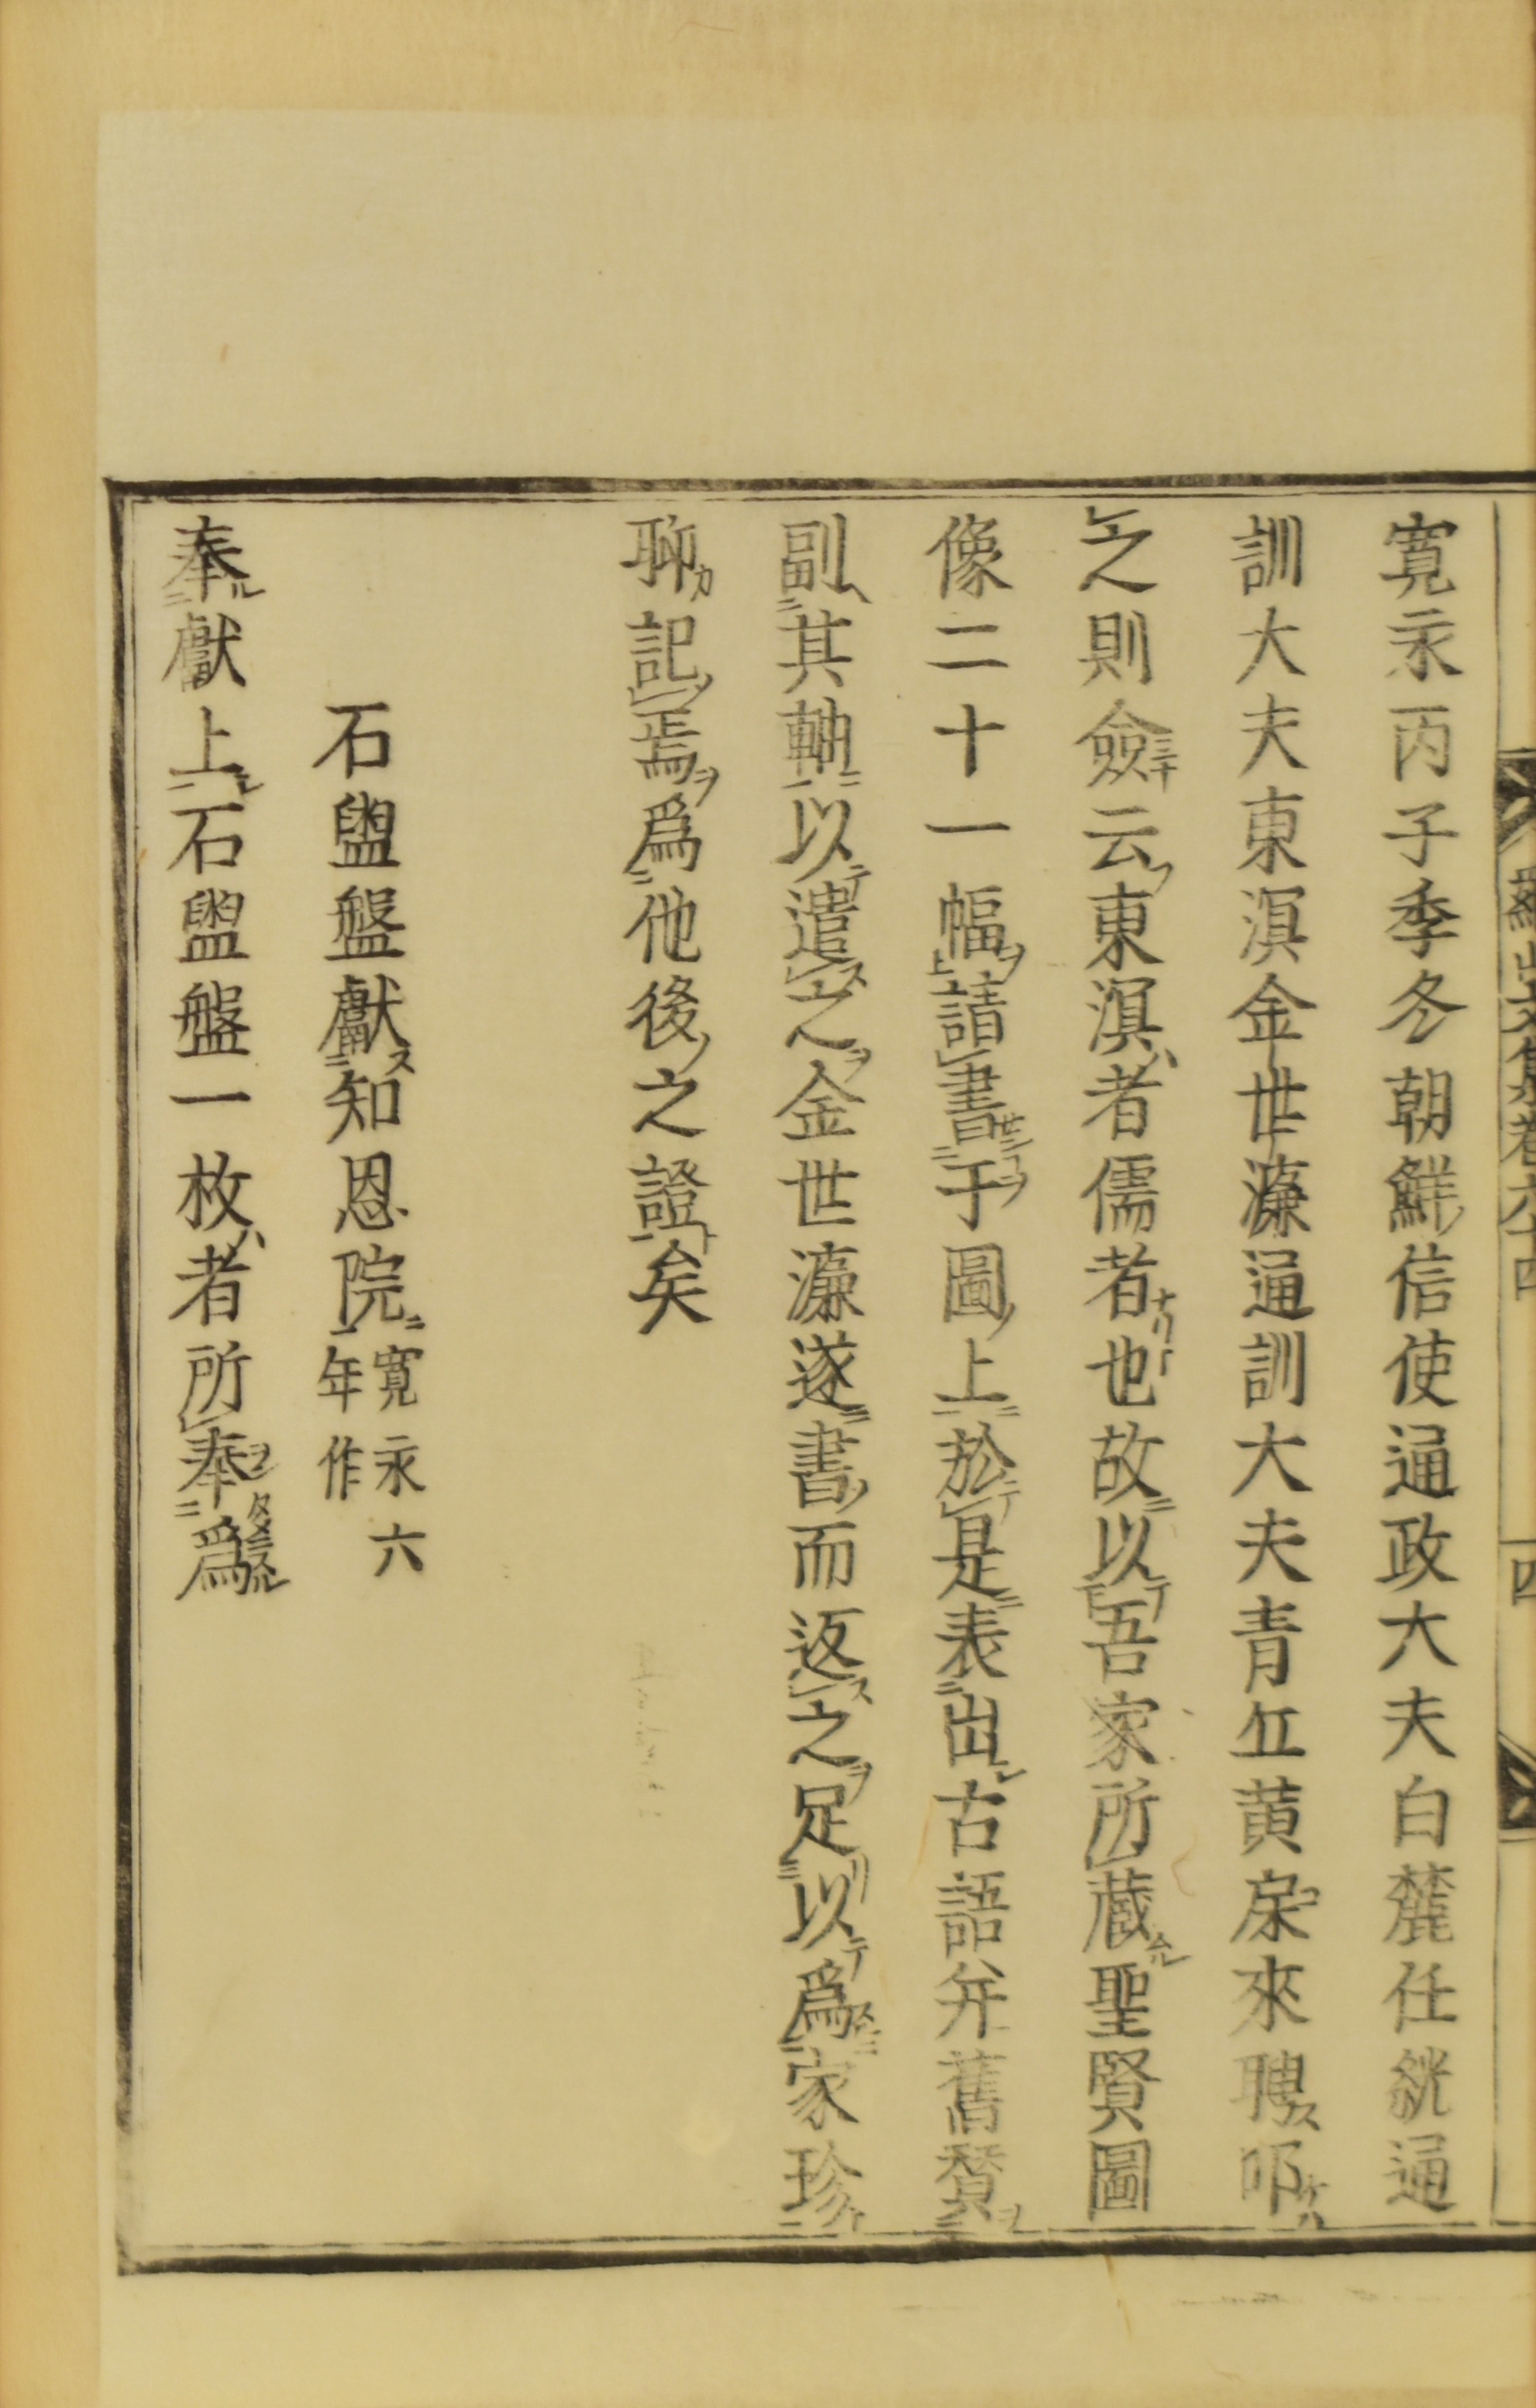 寬永丙子季冬朝鮮信使通政大夫白麓任絖通
訓大夫東溟金世濂通訓大夫青丘黃㦿來聘叩
之則僉云東溟者儒者也故以吾家所藏聖賢圖
像二十一幅請書于圖上於是表出古語并舊贊
副其軸以遣之金世濂遂書而返之足以爲家珍
聊記焉爲他後之證矣
石盥盤獻知恩院寬永六年作
奉獻上石盥盤一枚者所奉爲